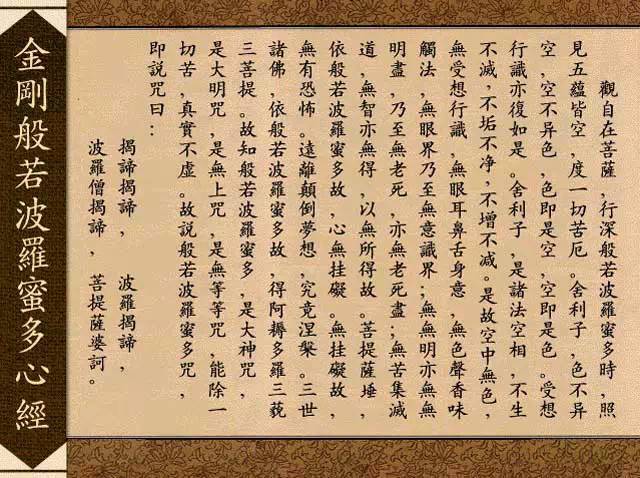 觀自在菩薩,行深般若波羅蜜多時,照
見五蘊皆空,度一切苦厄。舍利子,色不异
空,空不异色,色即是空,空即是色。受想
行識亦復如是。舍利子,是諸法空相,不生
不滅,不垢不净,不增不减。是故空中無色,
無受想行識,無眼耳鼻舌身意,無色聲香味
觸法,無眼界乃至無意識界;無無明亦無無
明盡,乃至無老死,亦無老死盡;無苦集滅
道,無智亦無得,以無所得故。菩提薩埵,
依般若波羅蜜多故,心無挂礙。無挂礙故,
無有恐怖。遠離顛倒夢想,究竟涅槃。三世
諸佛,依般若波羅蜜多故,得阿耨多羅三藐
三菩提。故知般若波羅蜜多,是大神咒,
是大明咒,是無上咒,是無等等咒,能除一
切苦,真實不虛。故説般若波羅蜜多咒,
即説咒曰:
揭諦揭諦, 波羅揭諦,
波羅僧揭諦, 菩提薩婆訶。
金剛般若波羅蜜多心經